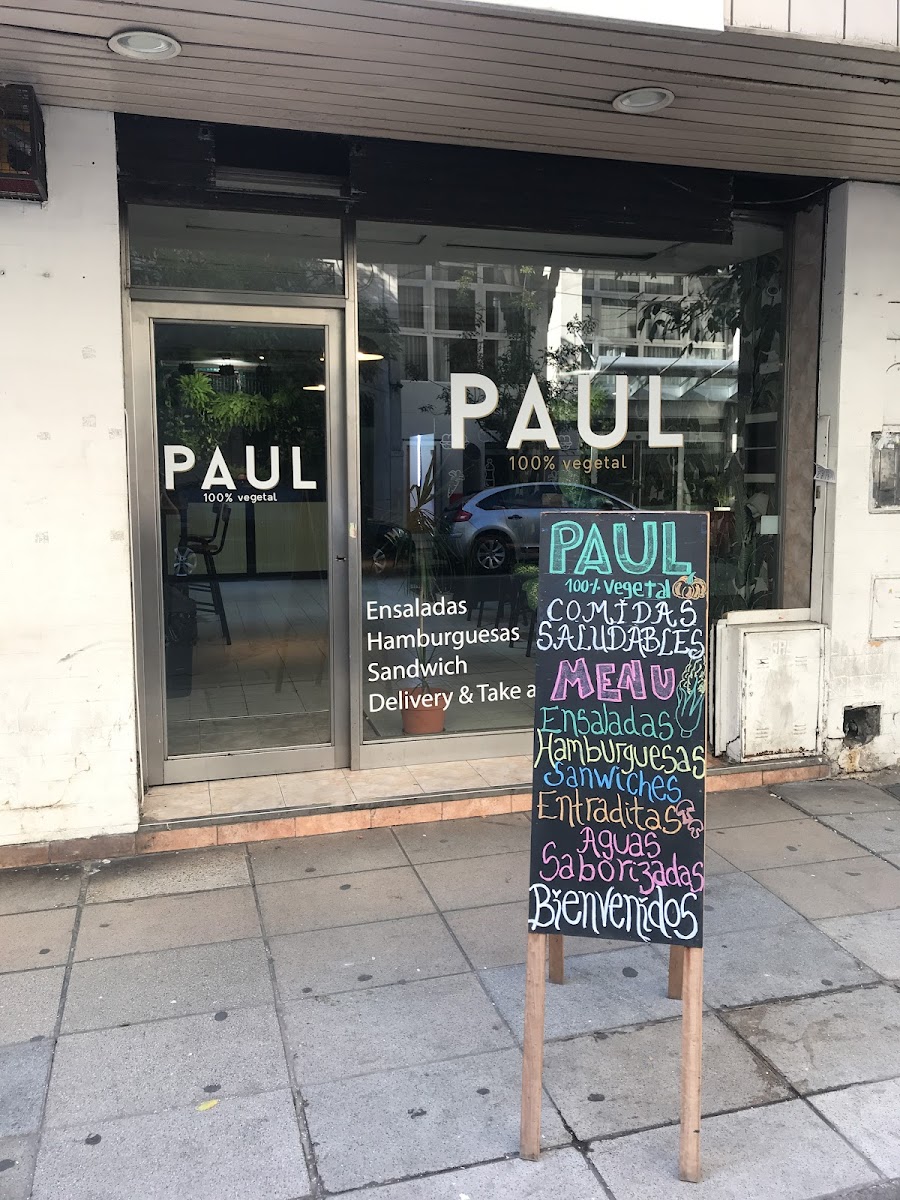 PAUL
100% vegetal
PAUL
100% vegetal
Ensaladas
Hamburguesas
Sandwich
Delivery & Take a
PAUL
100% vegetal
COMIDAS
SALUDABLES
MENU
Ensaladas
Hamburguesas
Sanwiches
Entraditas
Aguas
Saborizadas
Bienvenidos